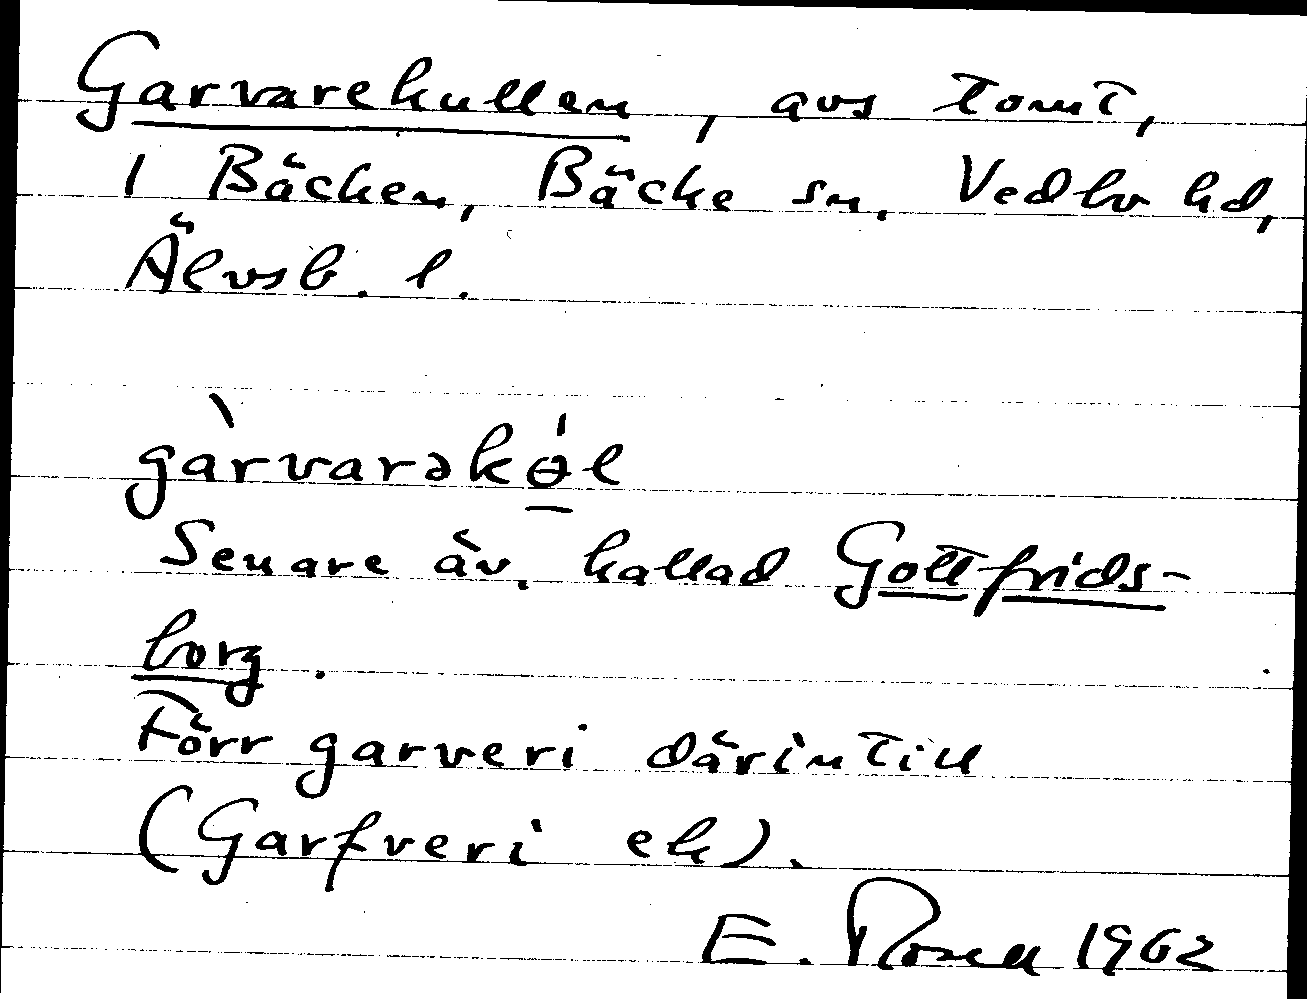 Garvarekullen, avs tomt,
i Bäcken, Bäcke sn. Vedbo hd,
Älvsb. l.
gàrvarəkɵ́l
Senare äv. kallad Gottfrids-
borg.
Förr garveri därintill
(Garfveri ek).
E. Rosell 1962